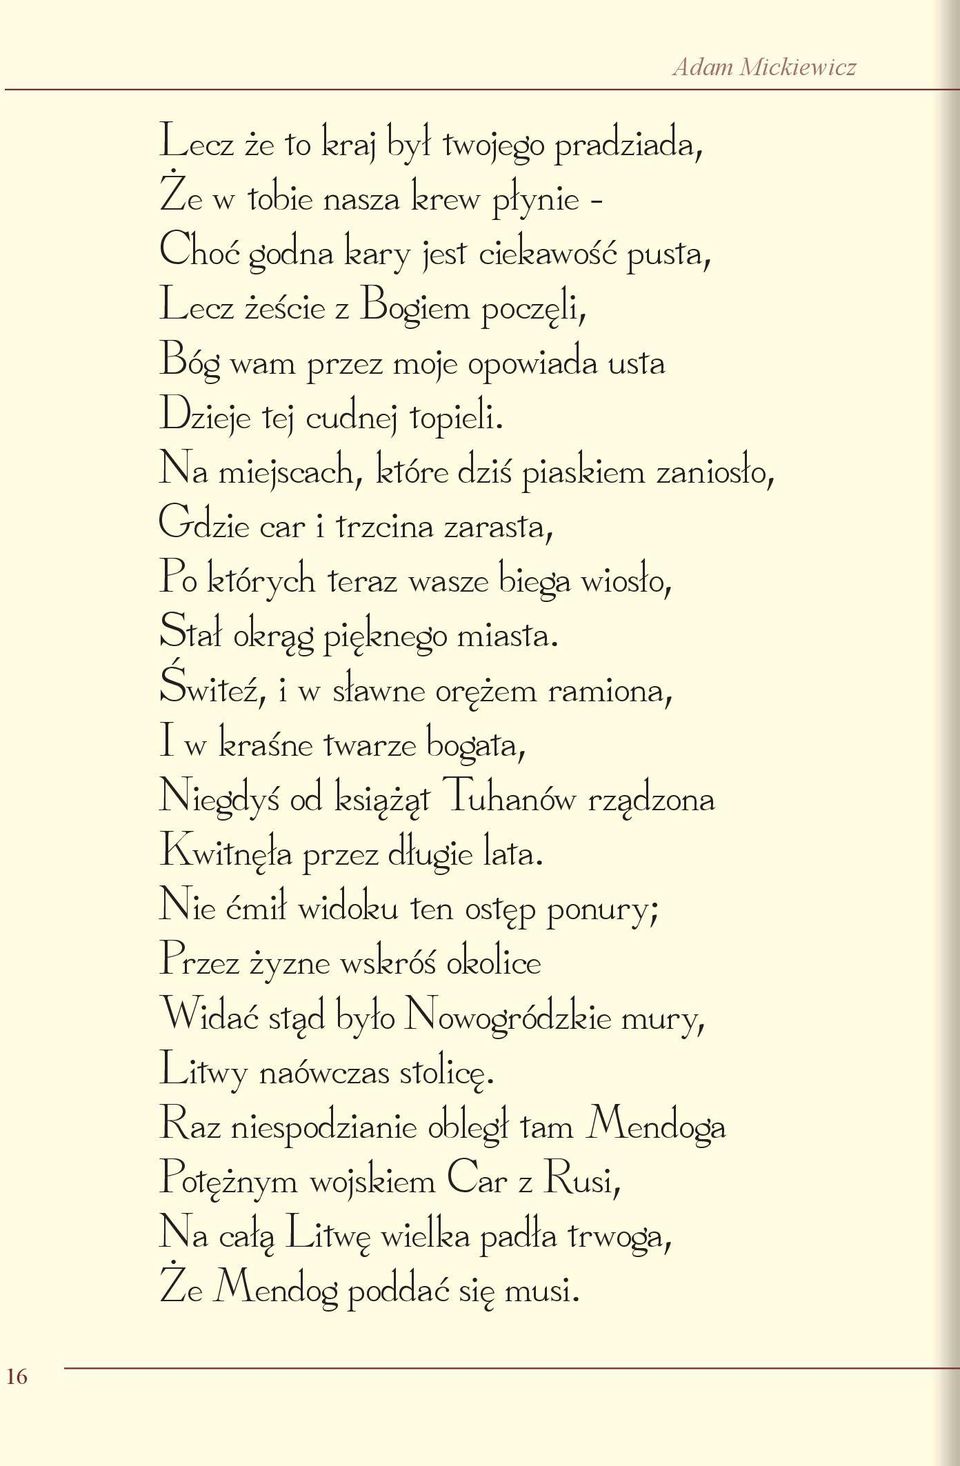 Adam Mickiewicz
Lecz że to kraj był twojego pradziada,
Że w tobie nasza krew płynie -
Choć godna kary jest ciekawość pusta,
Lecz żeście z Bogiem poczęli,
Bóg wam przez moje opowiada usta
Dzieje tej cudnej topieli.
Na miejscach, które dziś piaskiem zaniosło,
Gdzie car i trzcina zarasta,
Po których teraz wasze biega wiosło,
Stał okrąg pięknego miasta.
Świteź, i w sławne orężem ramiona,
I w kraśne twarze bogata,
Niegdyś od książąt Tuhanów rządzona
Kwitnęła przez długie lata.
Nie ćmił widoku ten ostęp ponury;
Przez żyzne wskróś okolice
Widać stąd było Nowogródzkie mury,
Litwy naówczas stolicę.
Raz niespodzianie obległ tam Mendoga
Potężnym wojskiem Car z Rusi,
Na całą Litwę wielka padła trwoga,
Że Mendog poddać się musi.
16